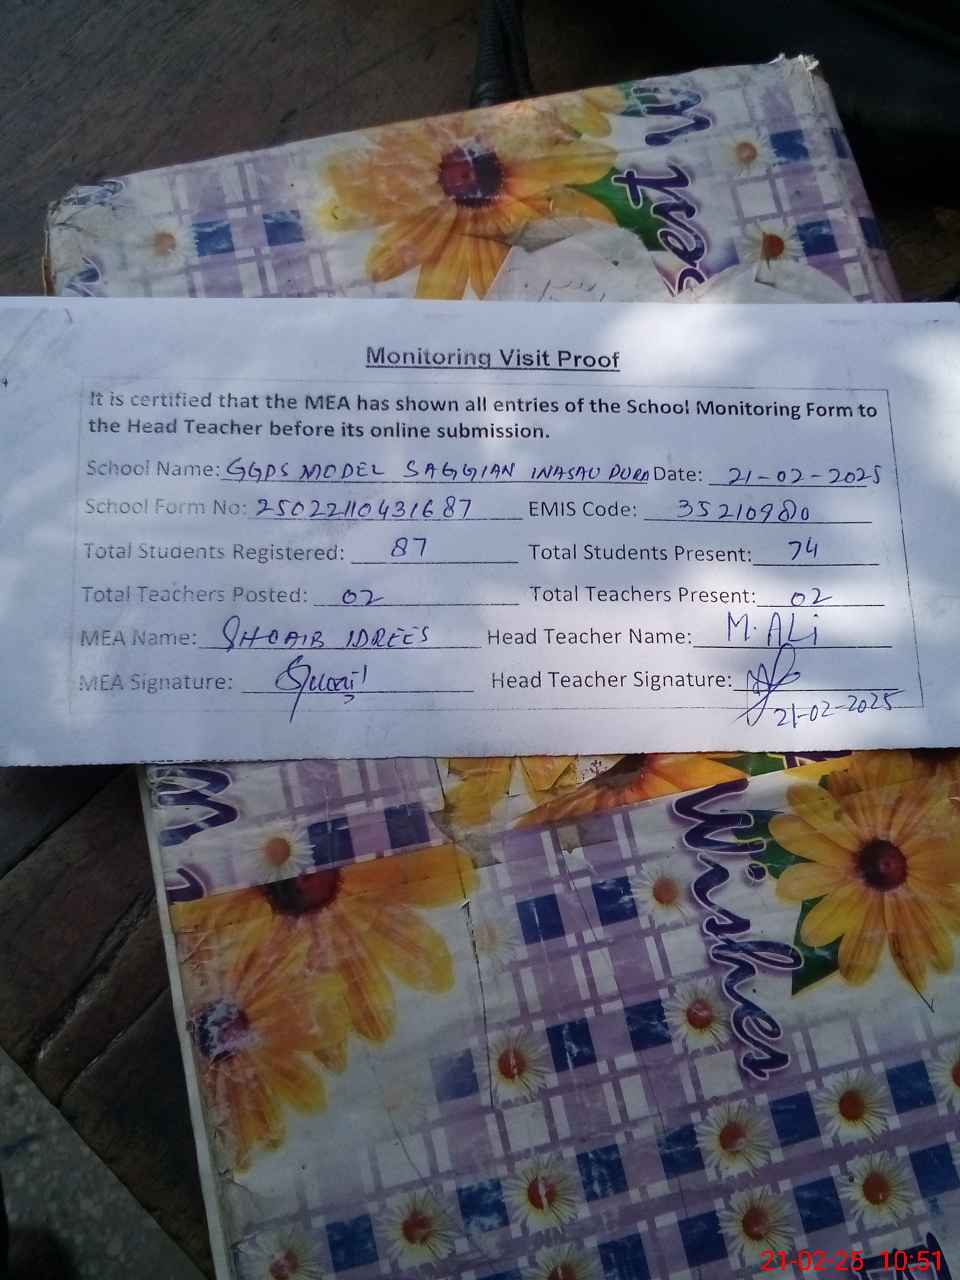 Monitoring Visit Proof
It is certified that the MEA has shown all entries of the School Monitoring Form to
the Head Teacher before its online submission.
School Name: GGPS MODEL SAGGIAN INASAU PURA Date: 21-02-2025
School Form No: 25022110431687 EMIS Code: 35210980
Total Students Registered: 87 Total Students Present: 74
Total Teachers Posted: 02 Total Teachers Present: 02
MEA Name: SHOAIB IDREES Head Teacher Name: M. ALi
MEA Signature: Head Teacher Signature:
21-02-2025
Wishes
21-02-25 10:51